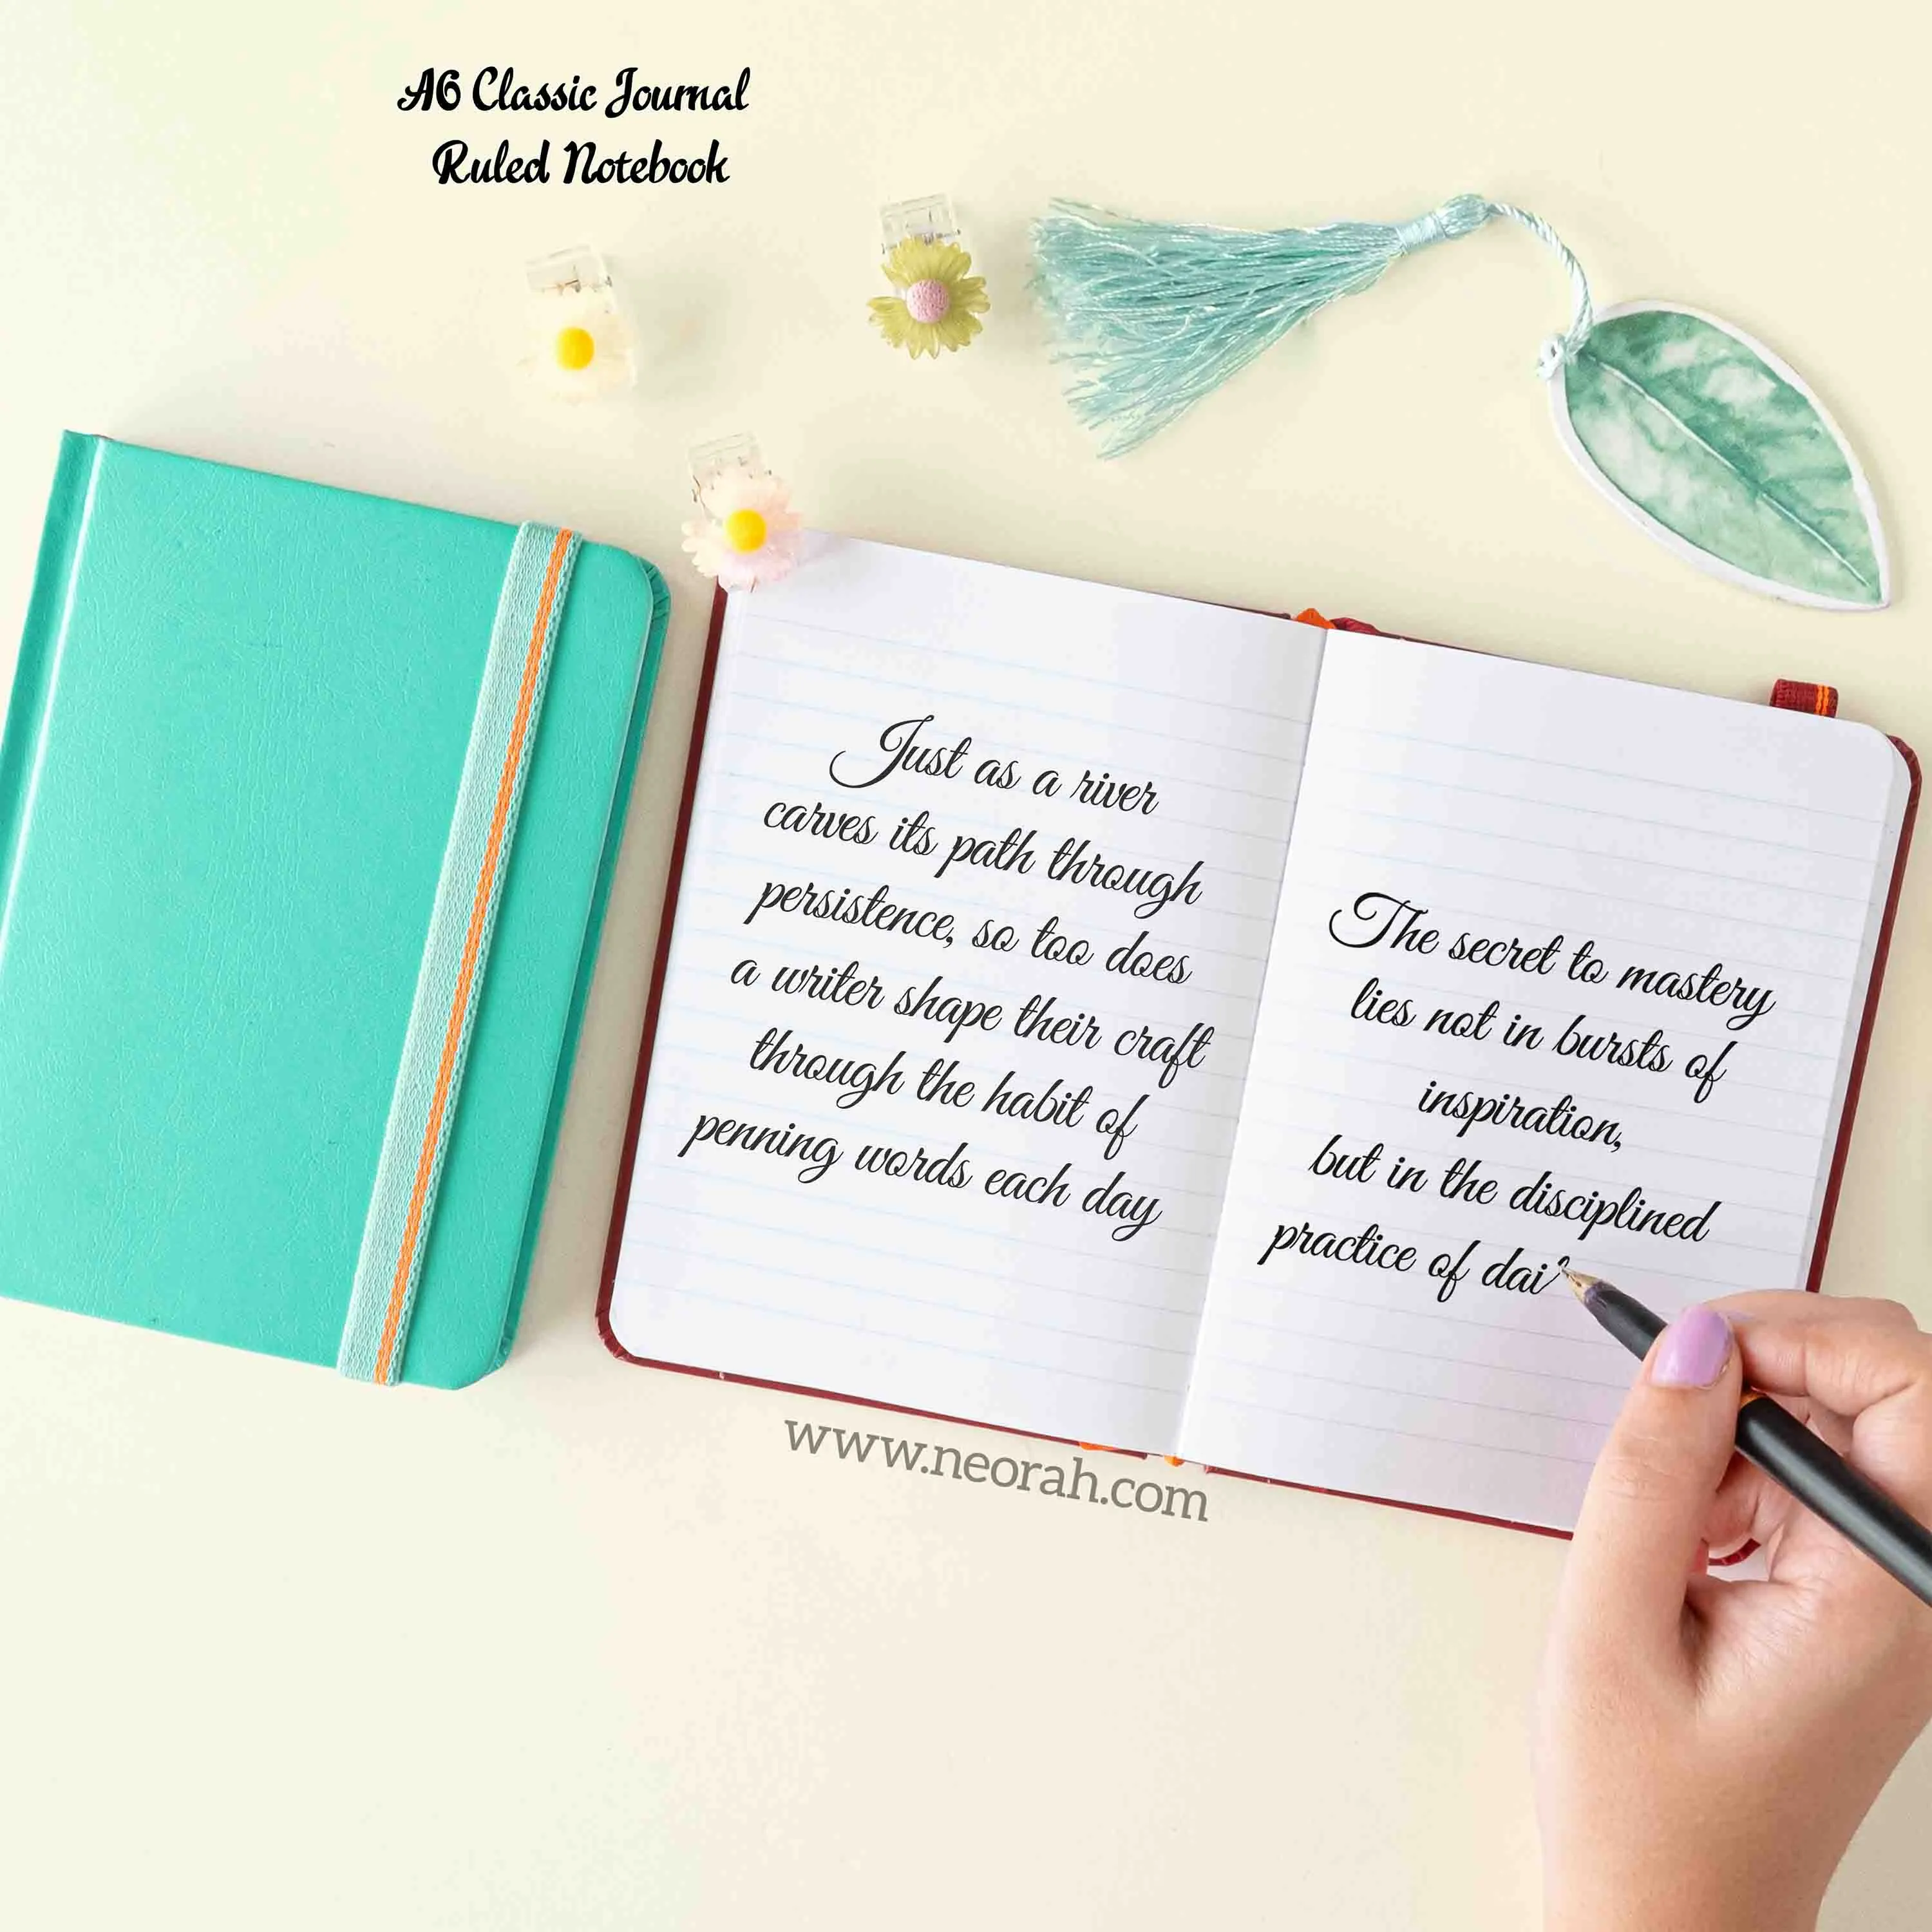 A6 Classic Journal
Ruled Notebook
Just as a river
carves its path through
persistence, so too does
a writer shape their craft
through the habit of
penning words each day
The secret to mastery
lies not in bursts of
inspiration,
but in the disciplined
practice of dai
www.neorah.com